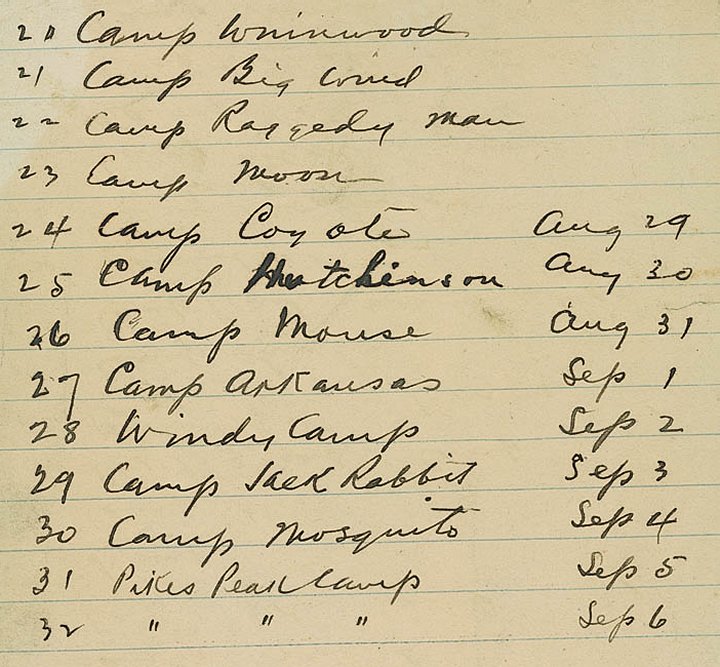 20 Camp
21 Camp Big Wind
22 Camp Raggedy Man
23 Camp Moon
24 Camp Coyote Aug 29
25 Camp Hutchinson Aug 30
26 Camp Mouse Aug 31
27 Camp Arkansas Sep 1
28 Windy Camp Sep 2
29 Camp Jack Rabbit Sep 3
30 Camp Mosquito Sep 4
31 Pikes Peak Camp Sep 5
32 " " " Sep 6